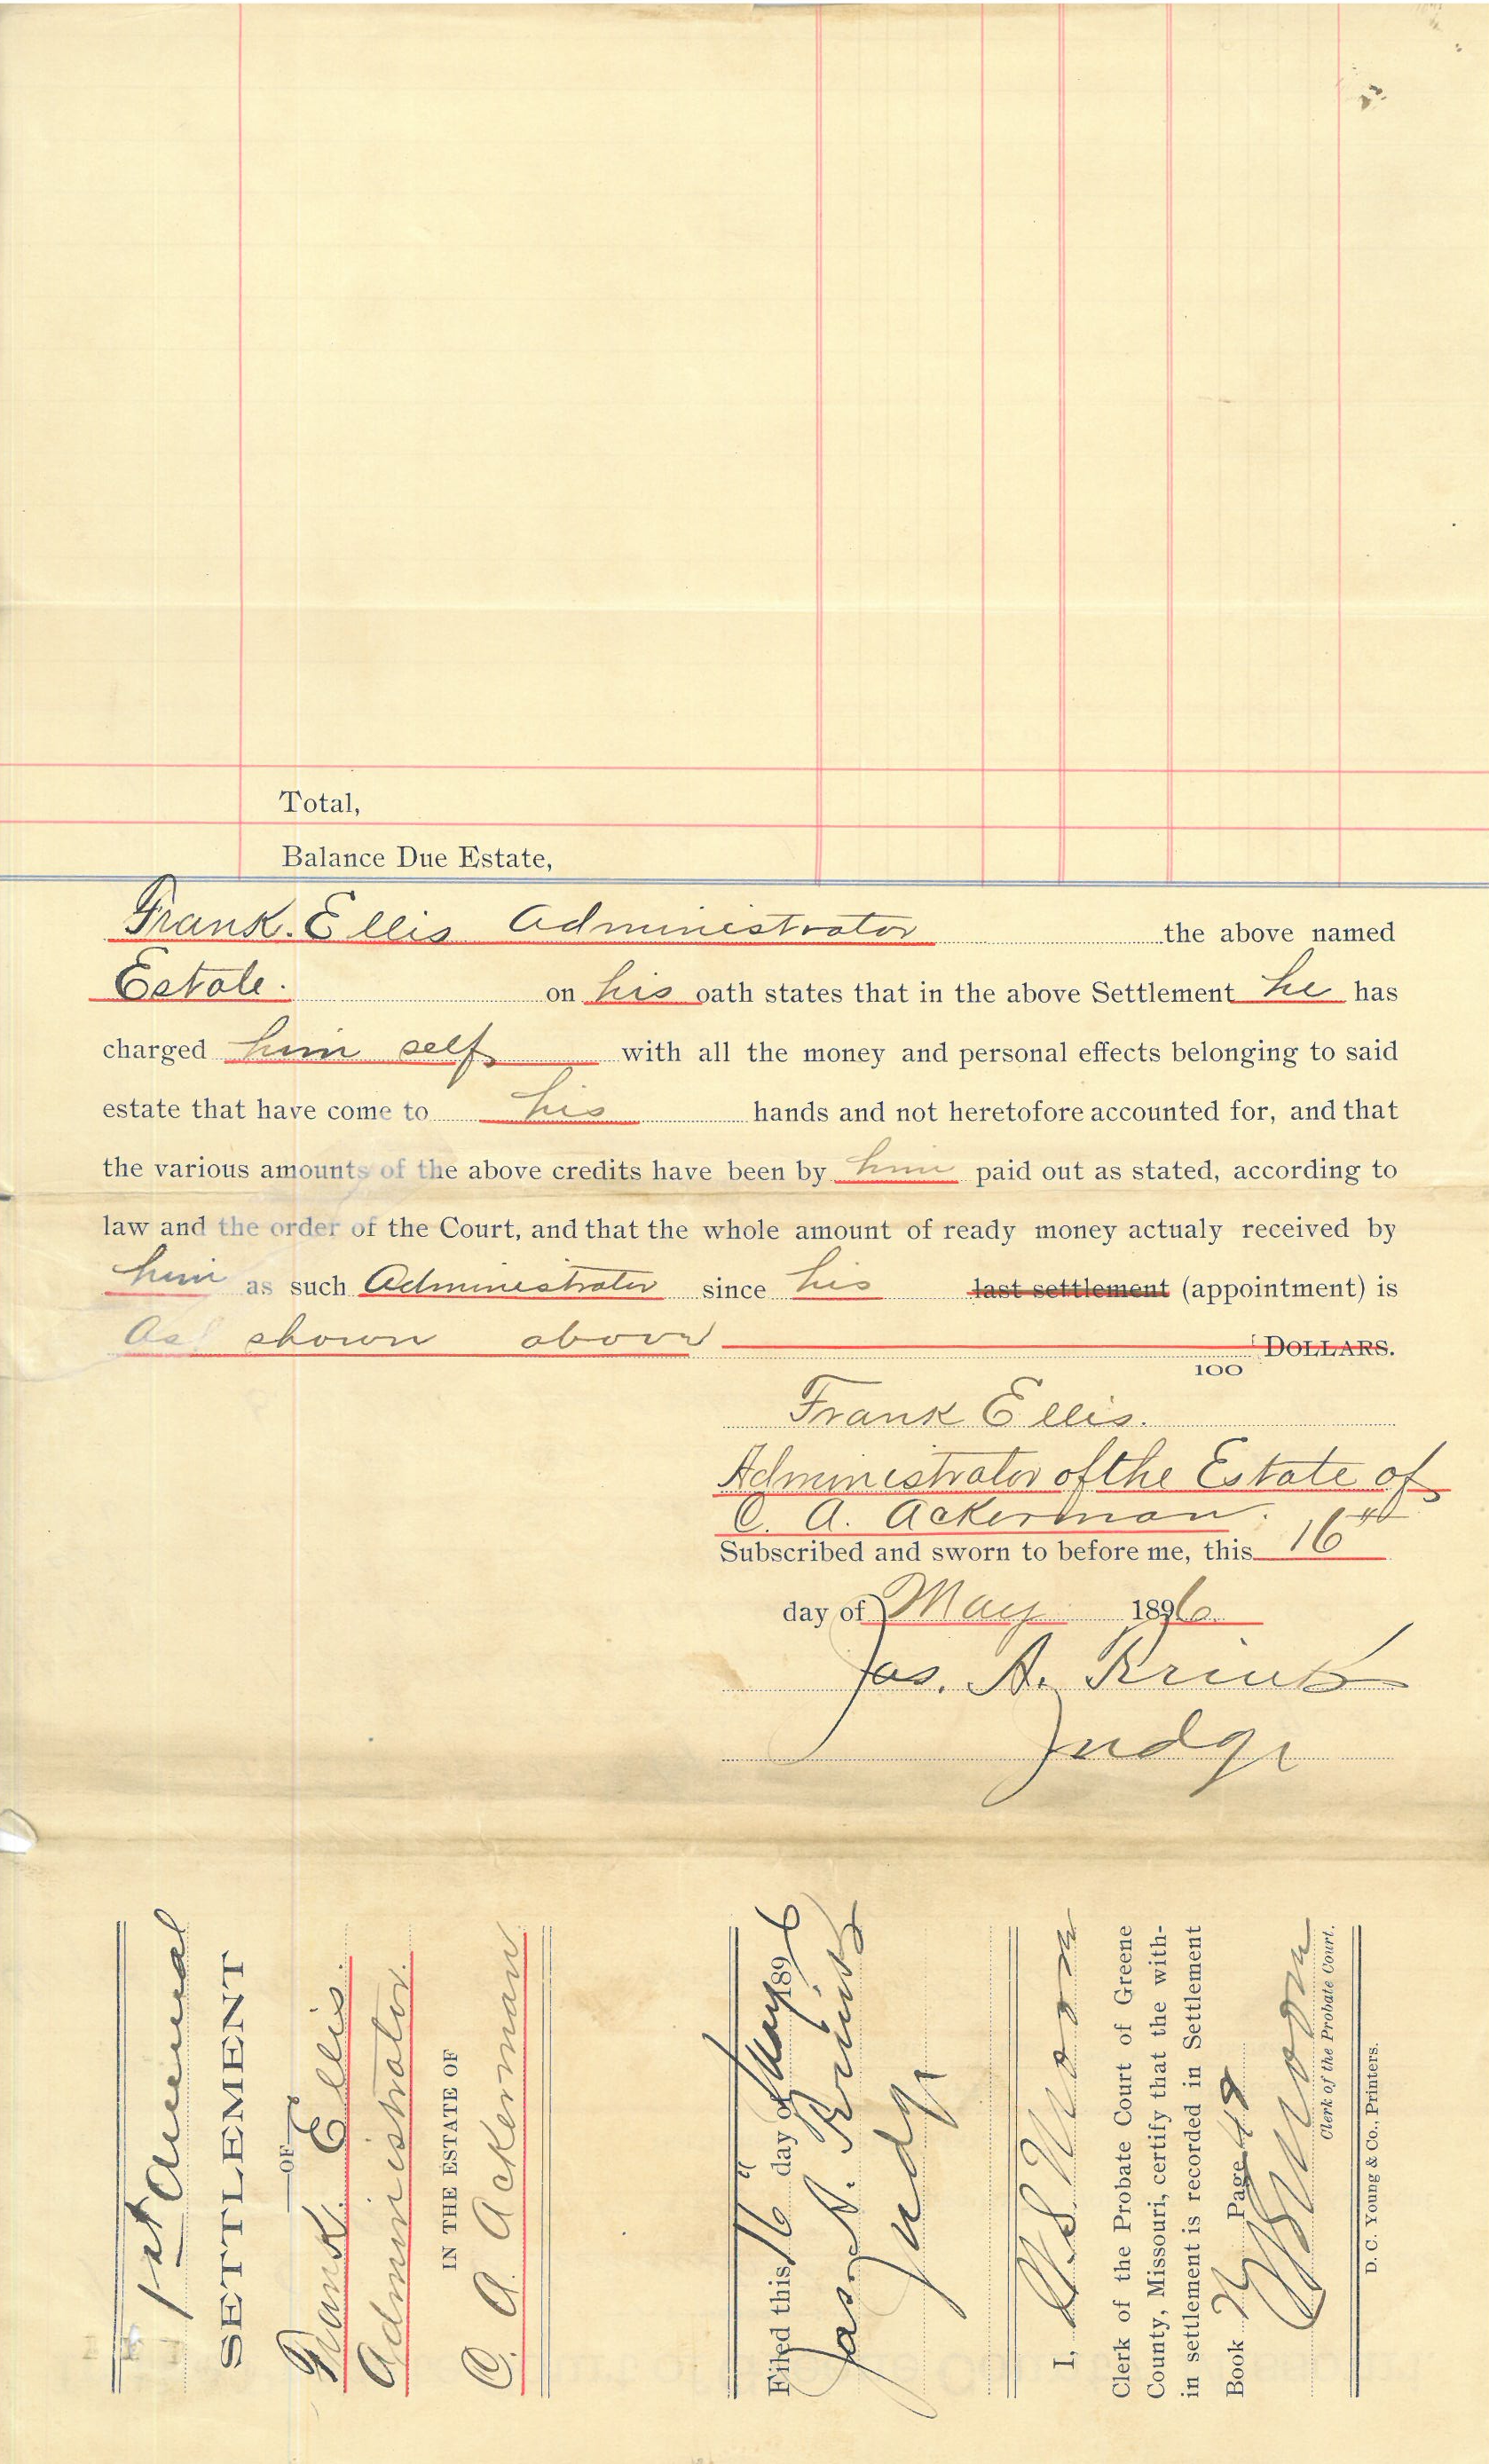 Total,
Balance Due Estate,
Frank. Ellis Administrator the above named
Estate. on his oath states that in the above Settlement he has
charged him self with all the money and personal effects belonging to said
estate that have come to his hands and not heretofore accounted for, and that
the various amounts of the above credits have been by him paid out as stated, according to
law and the order of the Court, and that the whole amount of ready money actualy received by
him as such Administrator since his last settlement (appointment) is
As shown above DOLLARS.
100
Frank Ellis.
Administrator of the Estate of
C. A. Ackerman.
Subscribed and sworn to before me, this 16th
day of May 1896
Jas. A.
Judge
1st Annual
SETTLEMENT
—OF—
Frank. Ellis.
Administrator.
IN THE ESTATE OF
C. A. Ackerman
Filed this 16" day of May 1896
Jas. A.
Judge
I,
Clerk of the Probate Court of Greene
County, Missouri, certify that the with-
in settlement is recorded in Settlement
Book Page
Clerk of the Probate Court.
D. C. Young & Co., Printers.